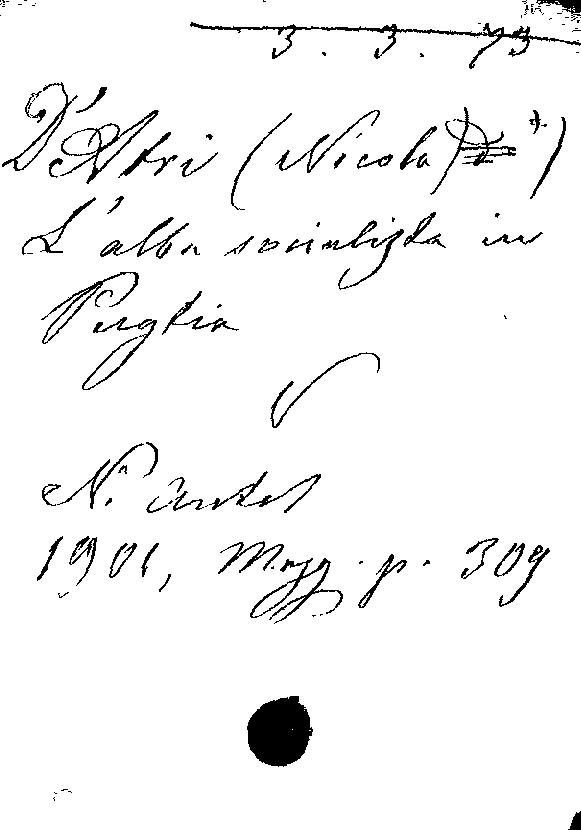 3. 3. 73
D'Atri (Nicola)
L'alba socialista in
Puglia
V
N. Antol
1901, Magg. p. 309